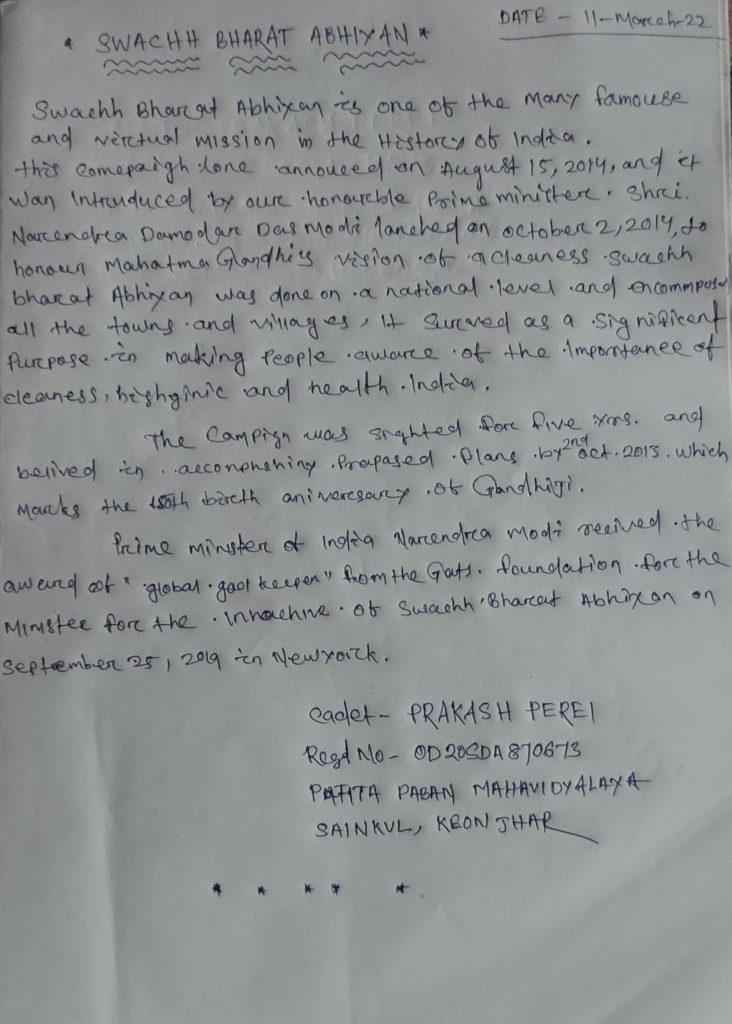 DATE - 11-March-22
* SWACHH BHARAT ABHIYAN *
Swachh Bharat Abhiyan is one of the many famouse
and virtual mission in the History of India.
this comepaigh done annouced on August 15, 2014, and it
wan Intruduced by our honourcble Prime ministere. Shri.
Narendra Damodar Das Modi lanched on october 2, 2014, to
honour Mahatma Gandhi's vision of a cleaness swachh
bharat Abhiyan was done on a national level and encommposed
all the towns and villages, It surved as a significent
Purpose in making People aware of the Imporntance of
cleaness, bishginic and health India.
The Campign was srghted for five yrs. and
belived in acconphshing Prapased Plans by 2nd oct. 2013. which
Marks the 150th birth aniversary of Gandhiji.
Prime minster of India Narendra Modi reeived the
award of "global goal keeper" from the Gats. foundation for the
Minstee for the of Swachh Bharat Abhiyan on
September 25, 2019 in Newyork.
Cadet - PRAKASH PEREI
Regd No - OD20SDA870673
PATITA PABAN MAHAVIDYALAYA
SAINKUL, KEONJHAR
* * * * *